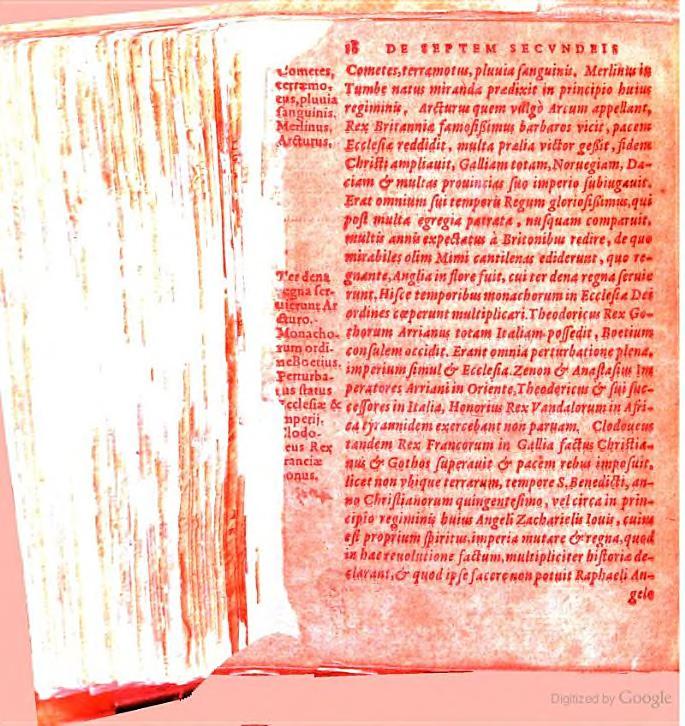 DE SEPTEM SECVNDEIS
Cometes,
terræmo-
tus, pluuia
sanguinis.
Merlinus,
Arcturus.
Ter dena
regna ser-
uierunt Ar
cturo.
Monacho-
rum ordi-
Boetius.
Perturba-
tus status
Ecclesiæ &
Imperij.
Clodo-
ueus Rex
Franciæ
Cometes, terræmotus, pluuia sanguinis. Merlinus in
Tumbe natus miranda prædixit in principio huius
regiminis, Arcturus quem vulgò Arcum appellant,
Rex Britanniæ famosißimus barbaros vicit, pacem
Ecclesiæ reddidit, multa prælia victor geßit, fidem
Christi ampliauit, Galliam totam, Noruegiam, Da-
ciam & multas prouincias suo imperio subiugauit.
Erat omnium sui temporis Regum gloriosißimus, qui
post multa egregia patrata, nusquam comparuit,
multis annis expectatus à Britonibus redire, de quo
mirabiles olim Mimi cantilenas ediderunt, quo re-
gnante, Anglia in flore fuit, cui ter dena regna seruie
runt. Hisce temporibus monachorum in Ecclesia Dei
ordines cœperunt multiplicari. Theodoricus Rex Go-
thorum Arrianus totam Italiam possedit, Boetium
consulem occidit. Erant omnia perturbatione plena,
imperium simul & Ecclesia. Zenon & Anastasius Im
peratores Arriani in Oriente, Theodoricus & sui suc-
cessores in Italia, Honorius Rex Vandalorum in Afri-
ca tyrannidem exercebant non paruam. Clodoueus
tandem Rex Francorum in Gallia factus Christia-
nus & Gothos superauit & pacem rebus imposuit,
licet non vbique terrarum, tempore S. Benedicti, an-
no Christianorum quingentesimo, vel circa in prin-
cipio regiminis huius Angeli Zacharielis Iouis, cuius
est proprium spiritus, imperia mutare & regna, quod
in hac reuolutione factum, multipliciter historiæ de-
clarant, & quod ipse facere non potuit Raphaeli An-
gelo
Digitized by Google